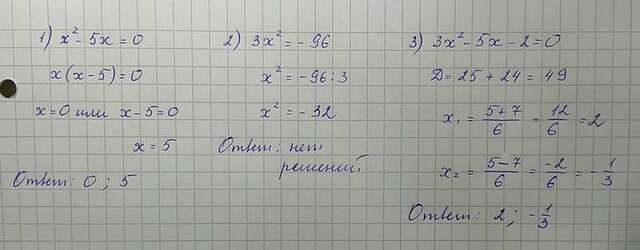 1) x² - 5x = 0
x(x - 5) = 0
x = 0 или x - 5 = 0
x = 5
Ответ: 0 ; 5
2) 3x² = - 96
x² = - 96 : 3
x² = - 32
Ответ: нет
решений.
3) 3x² - 5x - 2 = 0
D = 25 + 24 = 49
x₁ = (5 + 7)/6 = 12/6 = 2
x₂ = (5 - 7)/6 = -2/6 = - 1/3
Ответ: 2 ; - 1/3